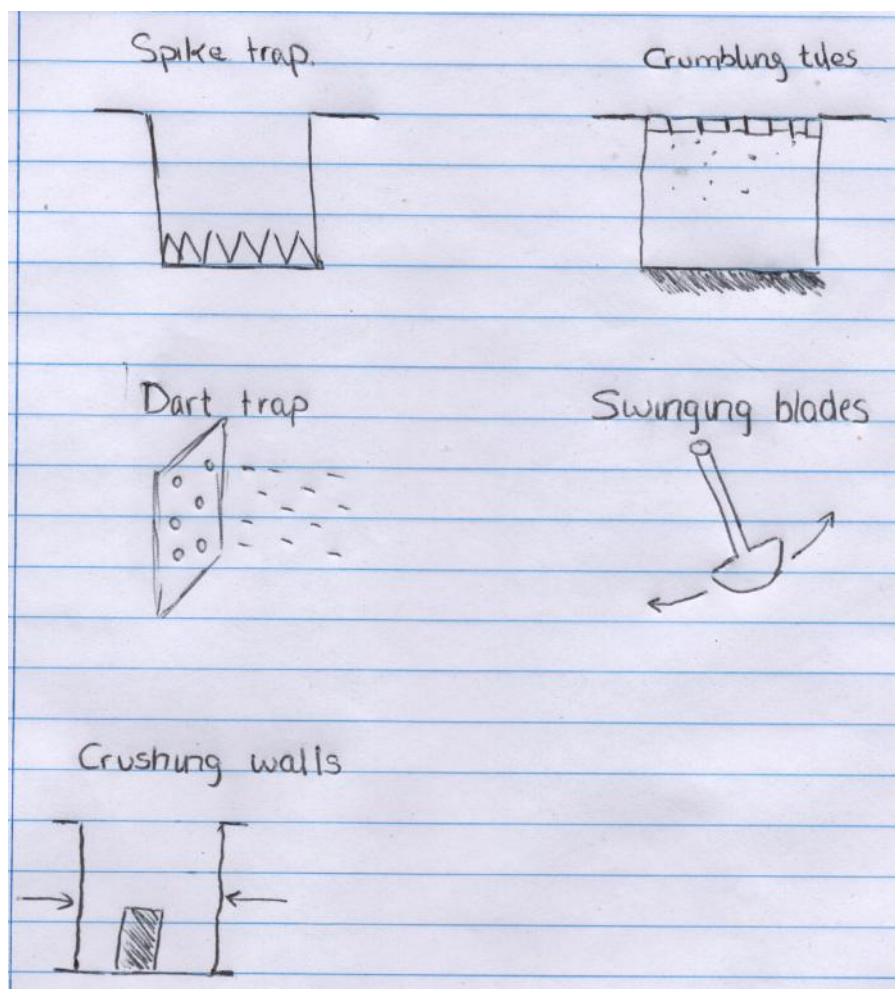 Spike trap.
Crumbling tiles
Dart trap
Swinging blades
Crushing walls